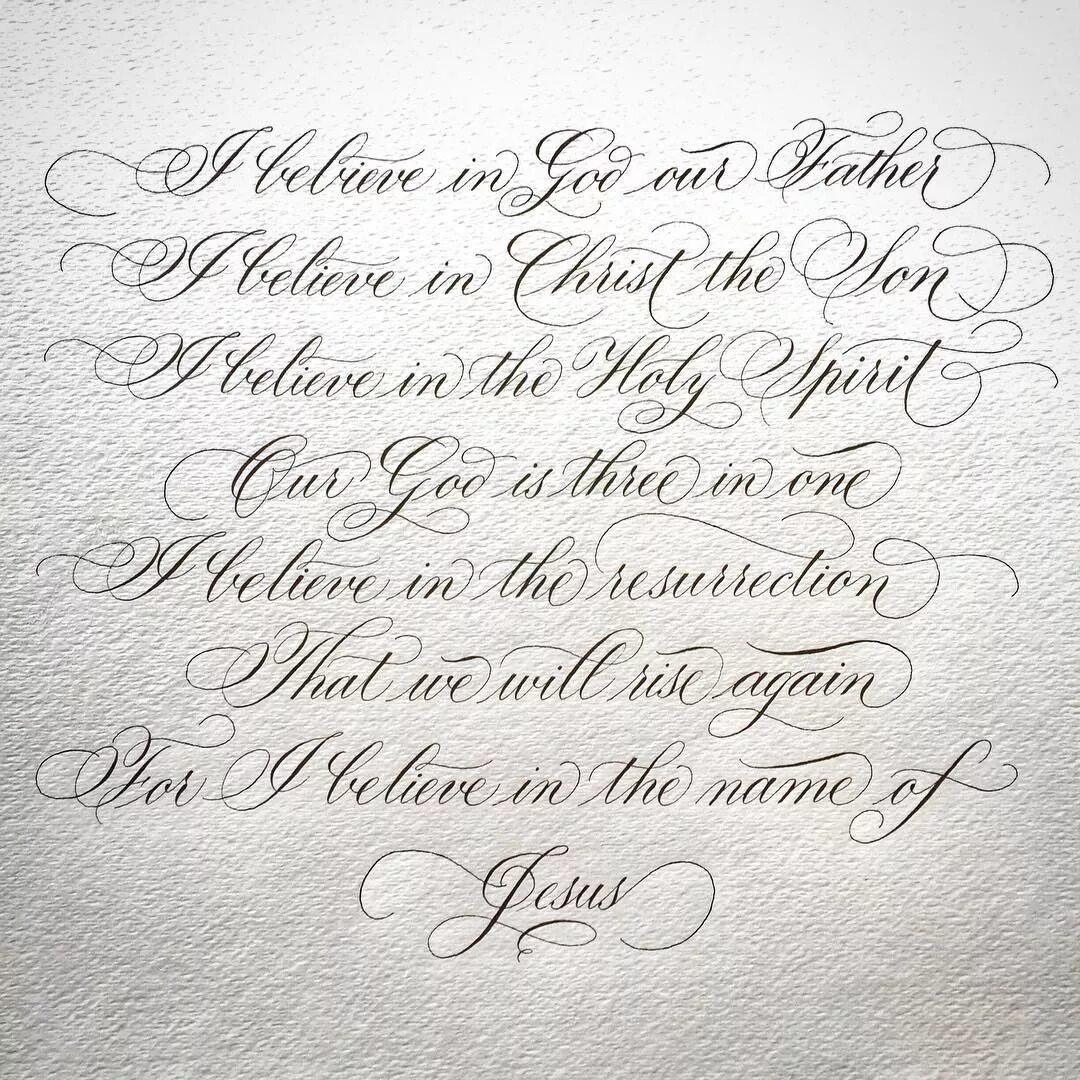 I believe in God our Father
I believe in Christ the Son
I believe in the Holy Spirit
Our God is three in one
I believe in the resurrection
That we will rise again
For I believe in the name of
Jesus